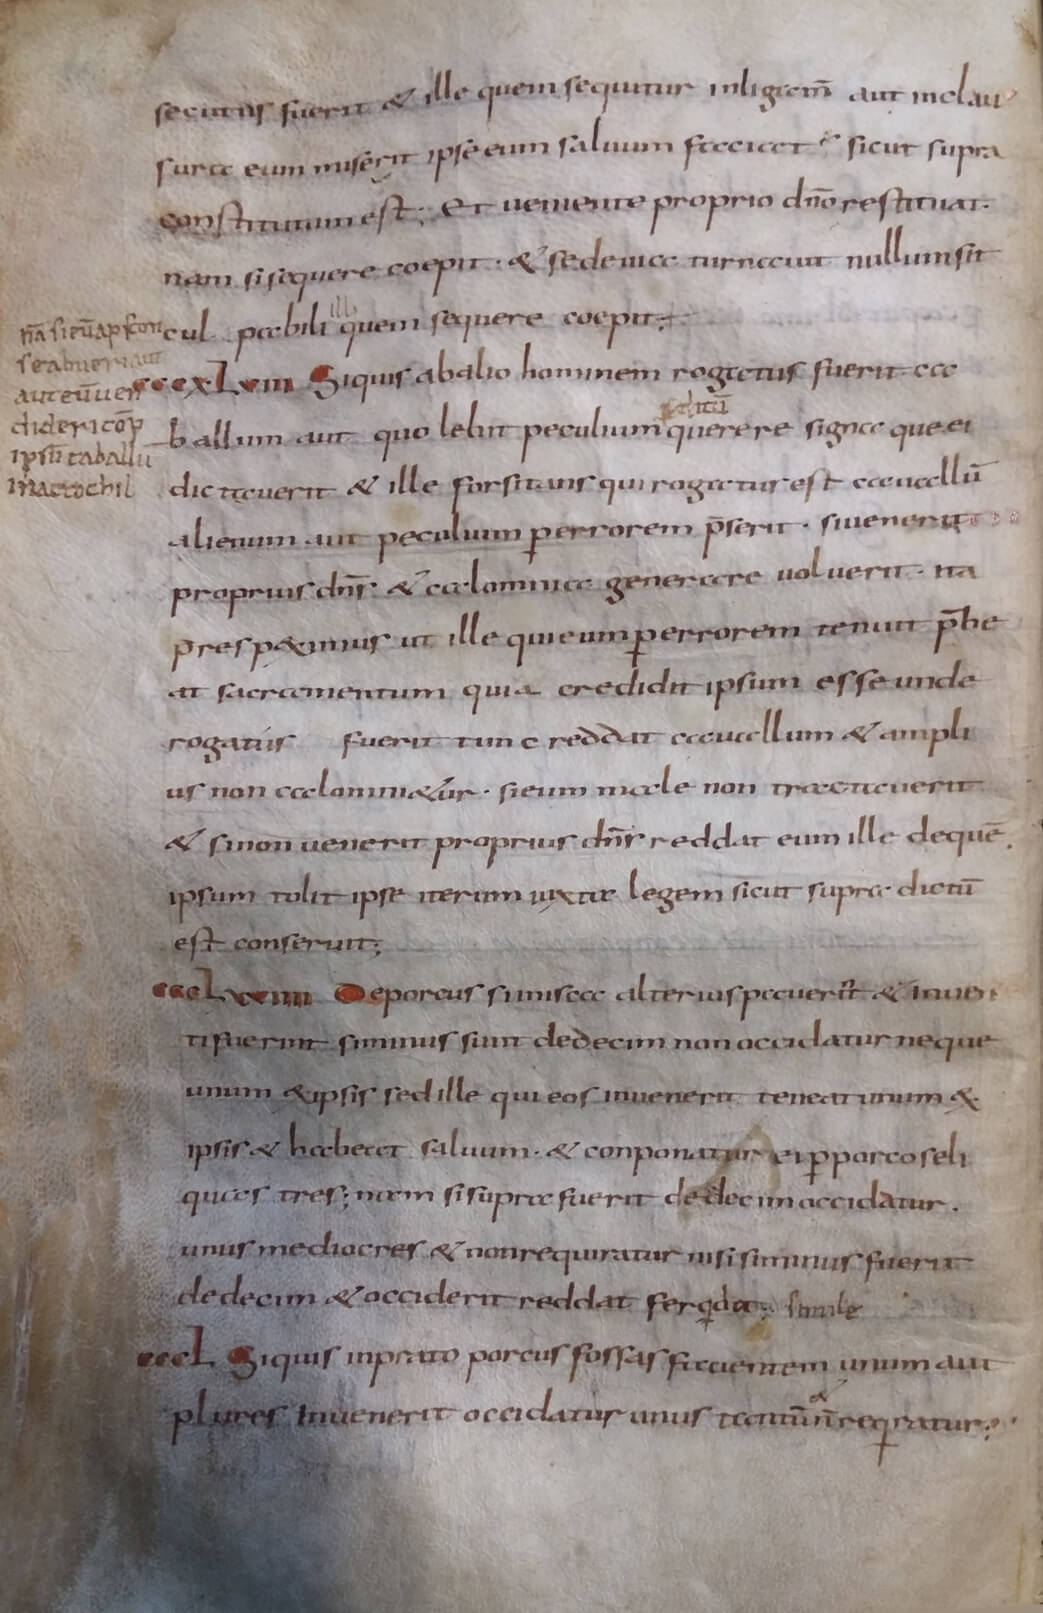 secutus fuerit & ille quem sequitur inligam̄ aut inclau
sura eum miserit ipse eum saluum faciat sicut supra
constitutum est; Et ueniente proprio dn̄o restituat.
nam si sequere coepit · & se de uia turnauit nullum sit
illi
cul pabili quem sequere coepit;
ccc xLviii Siquis ab alio hominem rogatus fuerit ca
ballum aut quo lebit peculium querere signa que ei
dictauerit & ille forsitans qui rogatur est cauallū
alienum aut peculium p̱ errorem p̄serit · si uenerit
proprius dn̄s & calomnia generare uoluerit · ita
prespeximus ut ille qui eum p̱ errorem tenuit p̄be
at sacramentum quia credidit ipsum esse unde
rogatus fuerit tunc reddat cauallum & ampli
us non calomni&ur · si eum male non tractauerit
& si non uenerit proprius dn̄s reddat eum ille de quē
ipsum tolit ipse iterum iuxta legem sicut supra dictū
est conseruit;
nā si eū ap̱ con
autēūuen
dideri cōp
ipsū caballū
inactoghil
De porcus si in isca alterius pauerit & inuen
ti fuerint si minus sunt de decim non occidatur neque
unum & ipsis sed ille qui eos inuenerit teneat unum &
ipsis & habeat saluum · & conponatur ei p̱ porco seli
quas tres; nam si supra fuerit de decim occidatur .
unus mediocres & non requiratur nisi si minus fuerit
de decim & occiderit reddat ferqda; simile
cccL Siquis in prato porcus fossas facientem unum aut
&
plures inuenerit occidatur unus tantūn̄ reqratur;